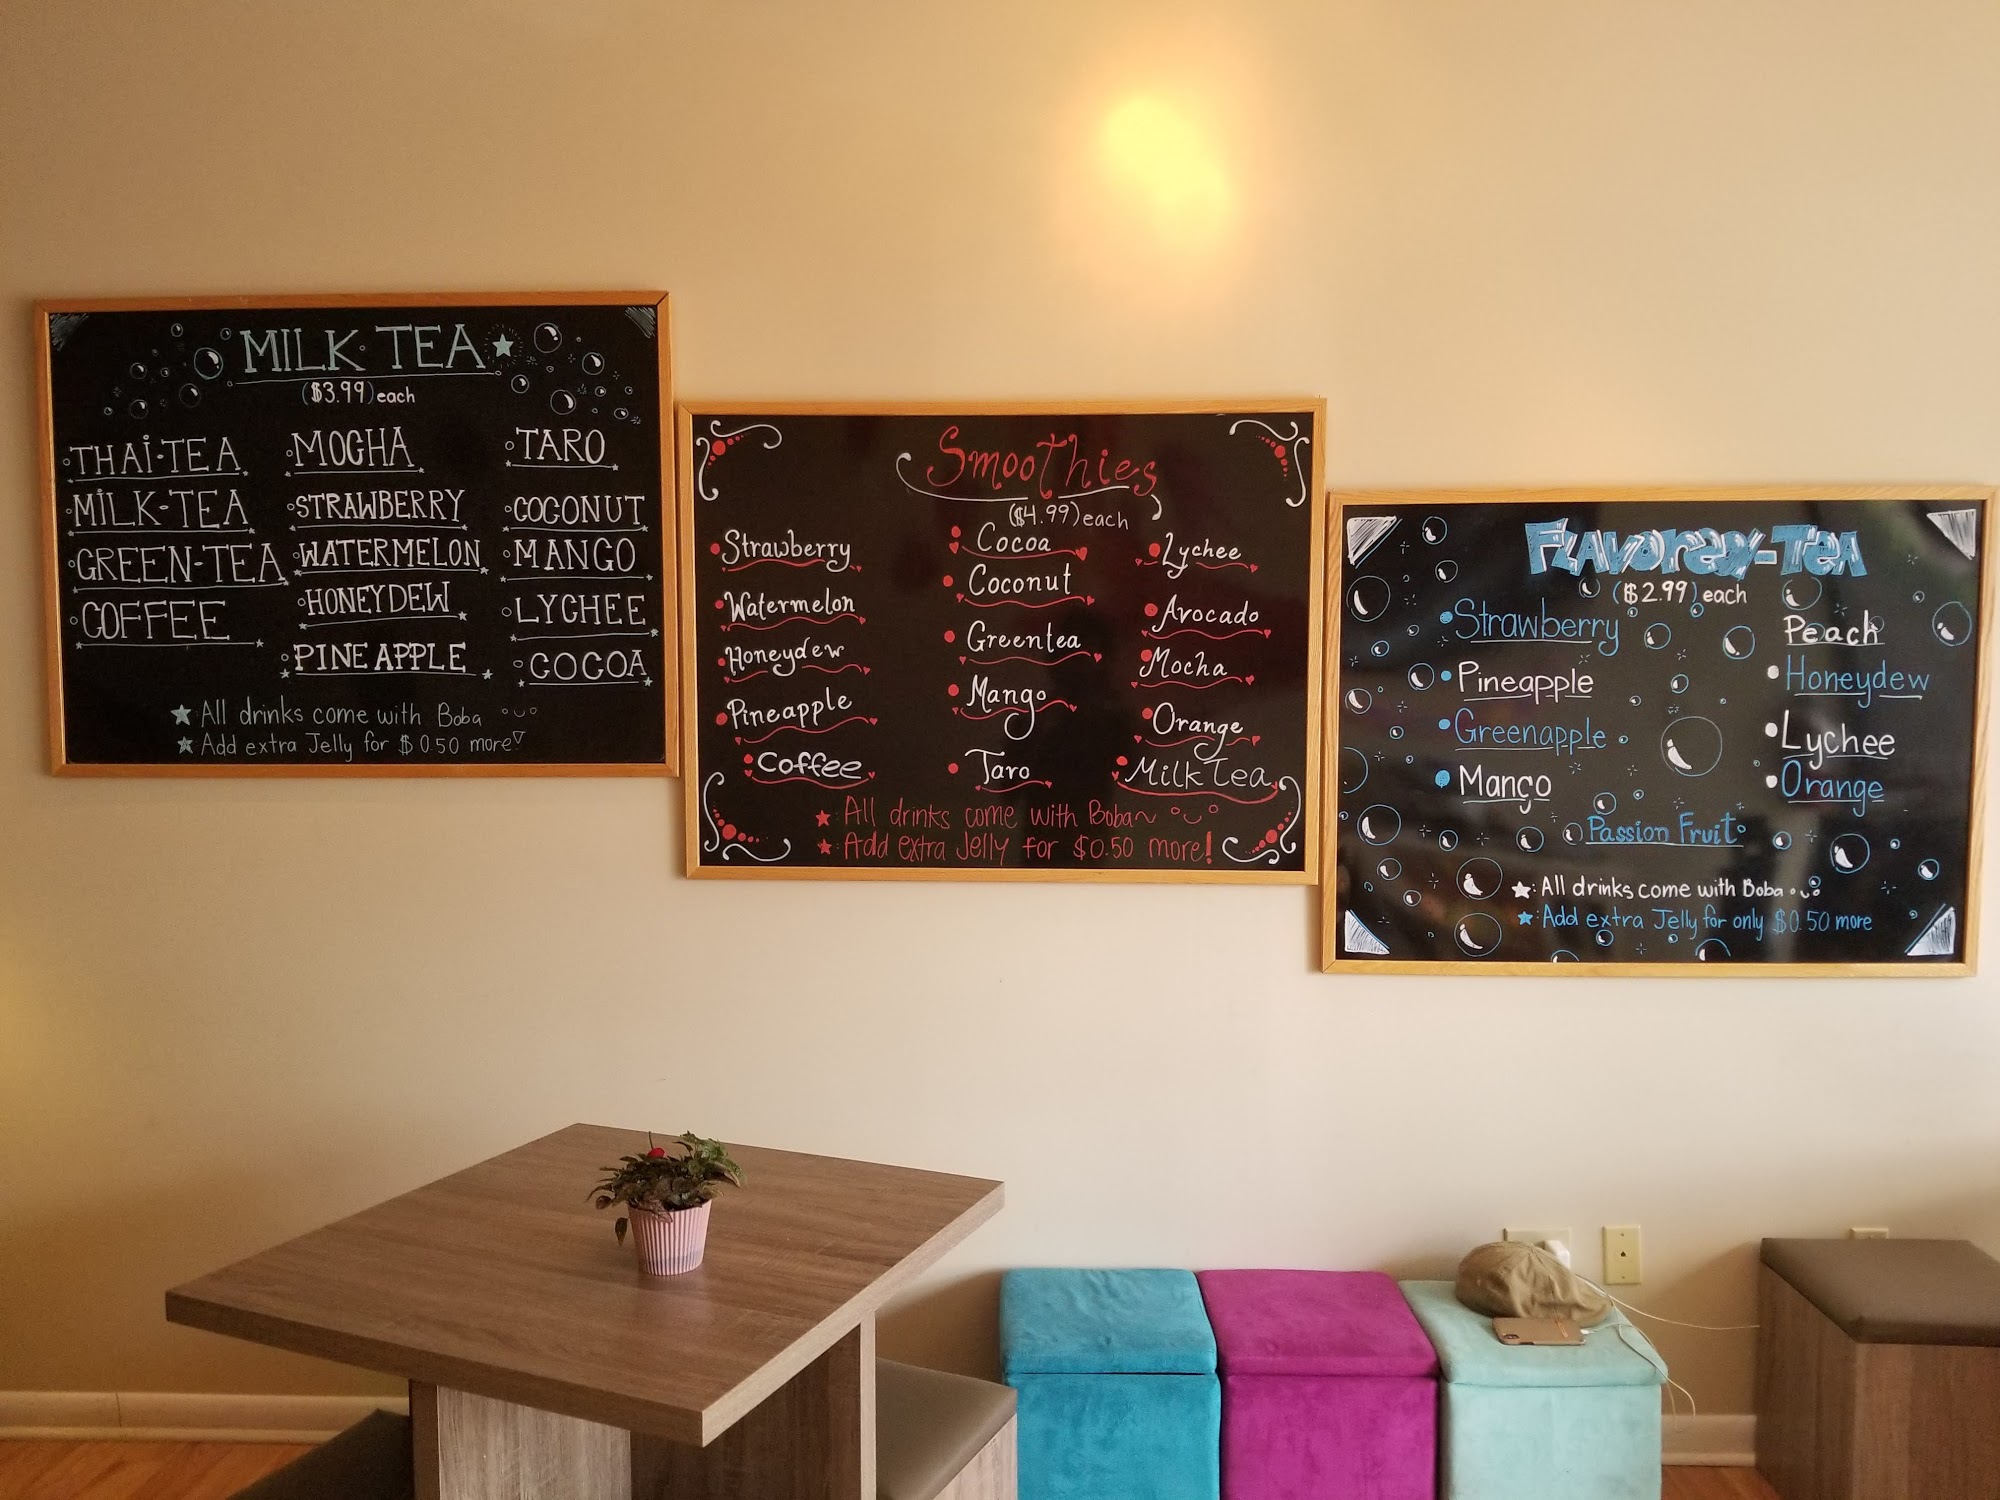 MILK TEA
($3.99) each
THAI·TEA
MILK-TEA
GREEN-TEA
COFFEE
MOCHA
STRAWBERRY
WATERMELON
HONEYDEW
PINEAPPLE
TARO
COCONUT
MANGO
LYCHEE
COCOA
All drinks come with Boba
Add extra Jelly for $0.50 more!
Smoothies
($4.99) each
Strawberry
Watermelon
Honeydew
Pineapple
Coffee
Cocoa
Coconut
Greentea
Mango
Taro
Lychee
Avocado
Mocha
Orange
Milk Tea
All drinks come with Boba~
Add extra Jelly for $0.50 more!
FLAVORED-TEA
($2.99) each
Strawberry
Pineapple
Greenapple
Mango
Peach
Honeydew
Lychee
Orange
Passion Fruit
All drinks come with Boba
Add extra Jelly for only $0.50 more